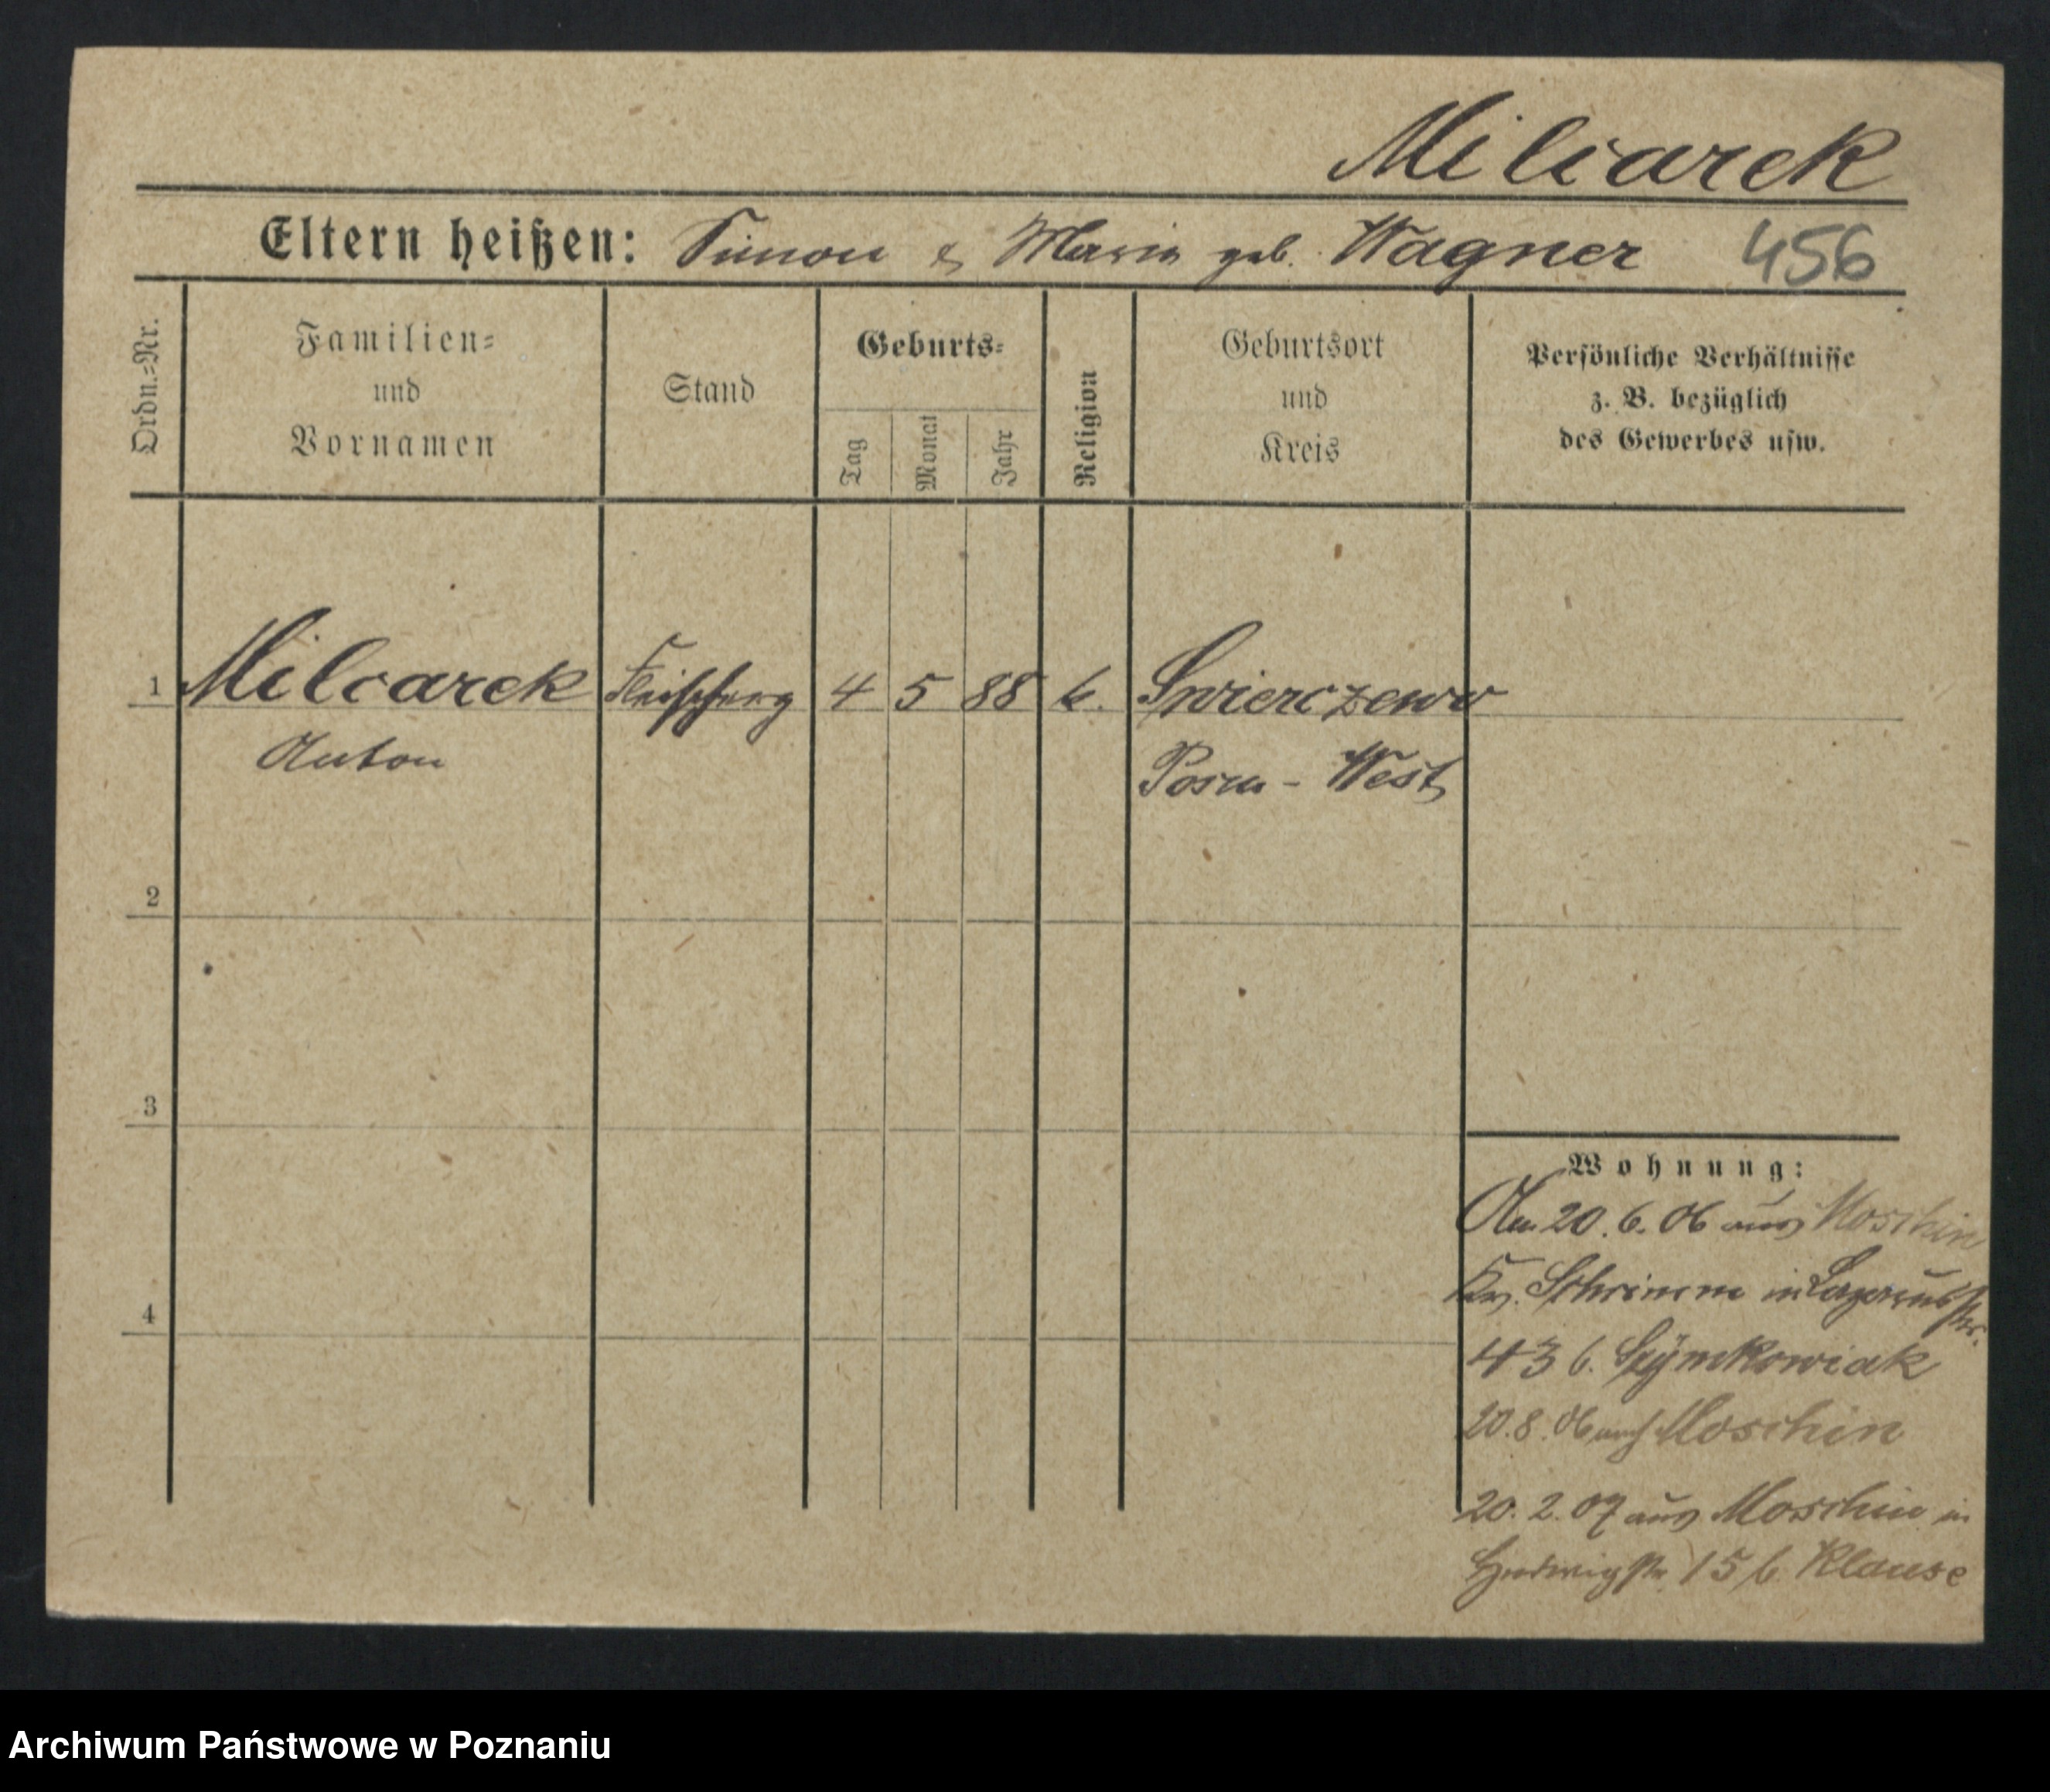 Milcarek
Eltern heißen: Simon & Maria geb. Wagner 456
Ordn.-Nr.
Familien-
und
Vornamen
Stand
Geburts-
Tag
Monat
Jahr
Religion
Geburtsort
und
Kreis
Persönliche Verhältnisse
z. B. bezüglich
des Gewerbes usw.
1 Milcarek 4 5 88 k. Swierczewo
Anton Posen - West
2
3
4
Wohnung:
Am 20.6.06 aus Moschin
Kr. Schrimm in
43 b. Szymkowiak
20.8.06 nach Moschin
20.2.07 aus Moschin in
Hedwigstr. 15 b. Klause
Archiwum Państwowe w Poznaniu